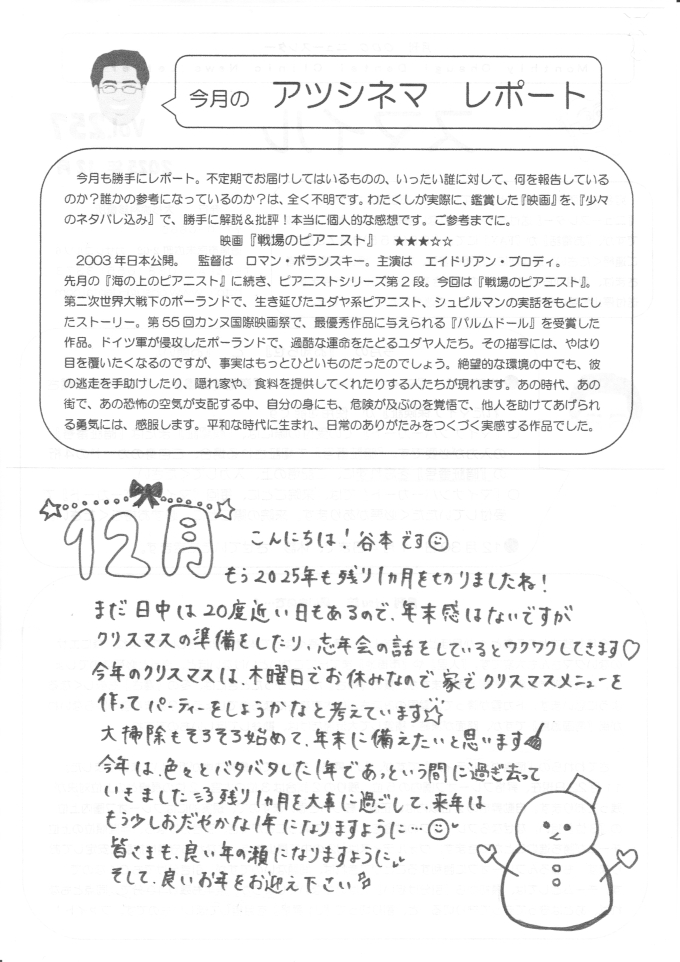 今月の アツシネマ レポート
今月も勝手にレポート。不定期でお届けしてはいるものの、いったい誰に対して、何を報告している
のか?誰かの参考になっているのか?は、全く不明です。わたくしが実際に、鑑賞した『映画』を、『少々
のネタバレ込み』で、勝手に解説&批評!本当に個人的な感想です。ご参考までに。
映画『戦場のピアニスト』 ★★★☆☆
2003年日本公開。 監督は ロマン・ポランスキー。主演は エイドリアン・ブロディ。
先月の『海の上のピアニスト』に続き、ピアニストシリーズ第2段。今回は『戦場のピアニスト』。
第二次世界大戦下のポーランドで、生き延びたユダヤ系ピアニスト、シュピルマンの実話をもとにし
たストーリー。第55回カンヌ国際映画祭で、最優秀作品に与えられる『パルムドール』を受賞した
作品。ドイツ軍が侵攻したポーランドで、過酷な運命をたどるユダヤ人たち。その描写には、やはり
目を覆いたくなるのですが、事実はもっとひどいものだったのでしょう。絶望的な環境の中でも、彼
の逃走を手助けしたり、隠れ家や、食料を提供してくれたりする人たちが現れます。あの時代、あの
街で、あの恐怖の空気が支配する中、自分の身にも、危険が及ぶのを覚悟で、他人を助けてあげられ
る勇気には、感服します。平和な時代に生まれ、日常のありがたみをつくづく実感する作品でした。
12月
こんにちは!谷本です
もう2025年も残り1カ月を切りましたね!
まだ日中は20度近い日もあるので、年末感はないですが
クリスマスの準備をしたり、忘年会の話をしているとワクワクしてきます♡
今年のクリスマスは、木曜日でお休みなので家でクリスマスメニューを
作ってパーティーをしようかなと考えています☆
大掃除もそろそろ始めて、年末に備えたいと思います
今年は、色々とバタバタした1年であっという間に過ぎ去って
いきました 残り1カ月を大事に過ごして、来年は
もう少しおだやかな1年になりますように…
皆さまも、良い年の瀬になりますように
そして、良いお年をお迎え下さい